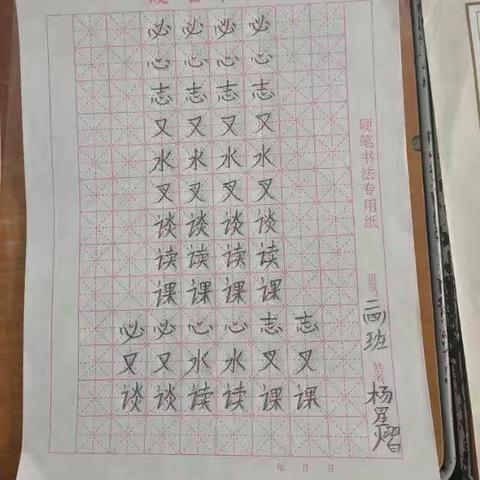 必必必必
心心心心
志志志志
又又又又
水水水水
叉叉叉叉
谈谈谈谈
读读读读
课课课课
必必心心志志
又又水水叉叉
谈谈读读课课
硬笔书法专用纸
班级 二四班
姓名 杨星熠
年 月 日